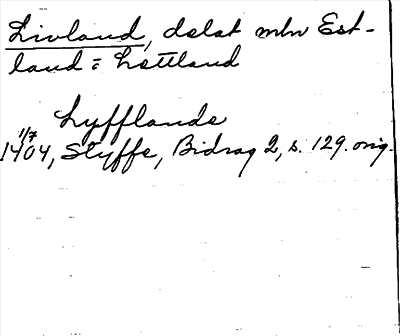 Livland, delat mln Est-
land = Lettland
Lyfflande
1/7
1404, Styffe, Bidrag 2, s. 129. orig.